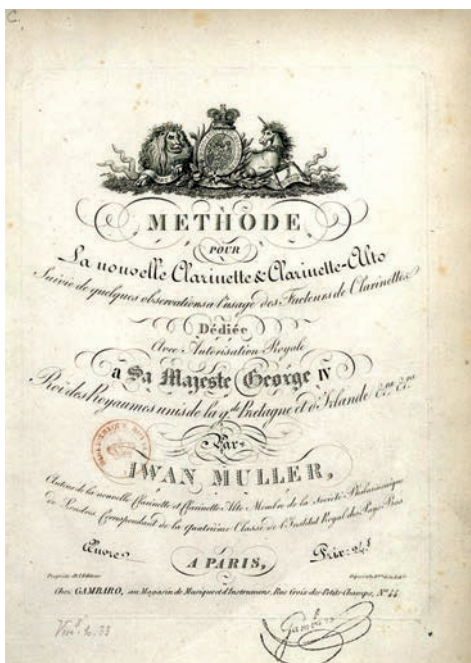 C.
METHODE
POUR
La nouvelle Clarinette & Clarinette-Alto
Suivie de quelques observations a l'usage des Facteurs de Clarinettes
Dédiée
Avec Autorisation Royale
a Sa Majeste George IV
Roi des Royaumes unis de la gde Bretagne et d'Irlande &ca &ca
Par
IWAN MULLER,
Auteur de la nouvelle Clarinette et Clarinette Alto Membre de la Societé Philarmonique
de Londres Correspondant de la Quatrième Classe de l'Institut Royal des Pays Bas
Œuvre
Prix: 24f
A PARIS,
Propriété de l'Editeur
Chez GAMBARO, au Magasin de Musique et d'Instrumens, Rue Croix des Petits Champs, No. 44
Gambaro